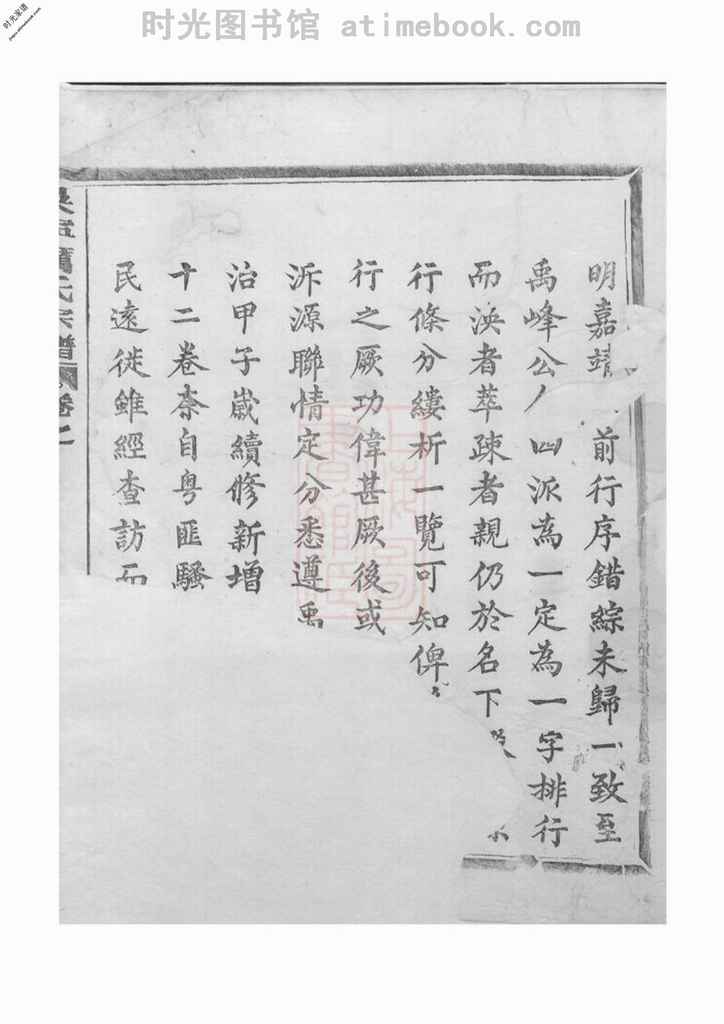 时光图书馆 atimebook.com
时光家谱
明嘉靖前行序錯綜未歸一致至
禹峰公凶派為一定為一字排行
而泱者萃疎者親仍於名下
行條分縷析一覽可知俾
行之厥功偉甚厥後或
泝源聯情定分悉遵禹
治甲子歲續修新增
十二卷柰自粤匪騷
民遠徙雖經查訪而
氏宗譜
卷